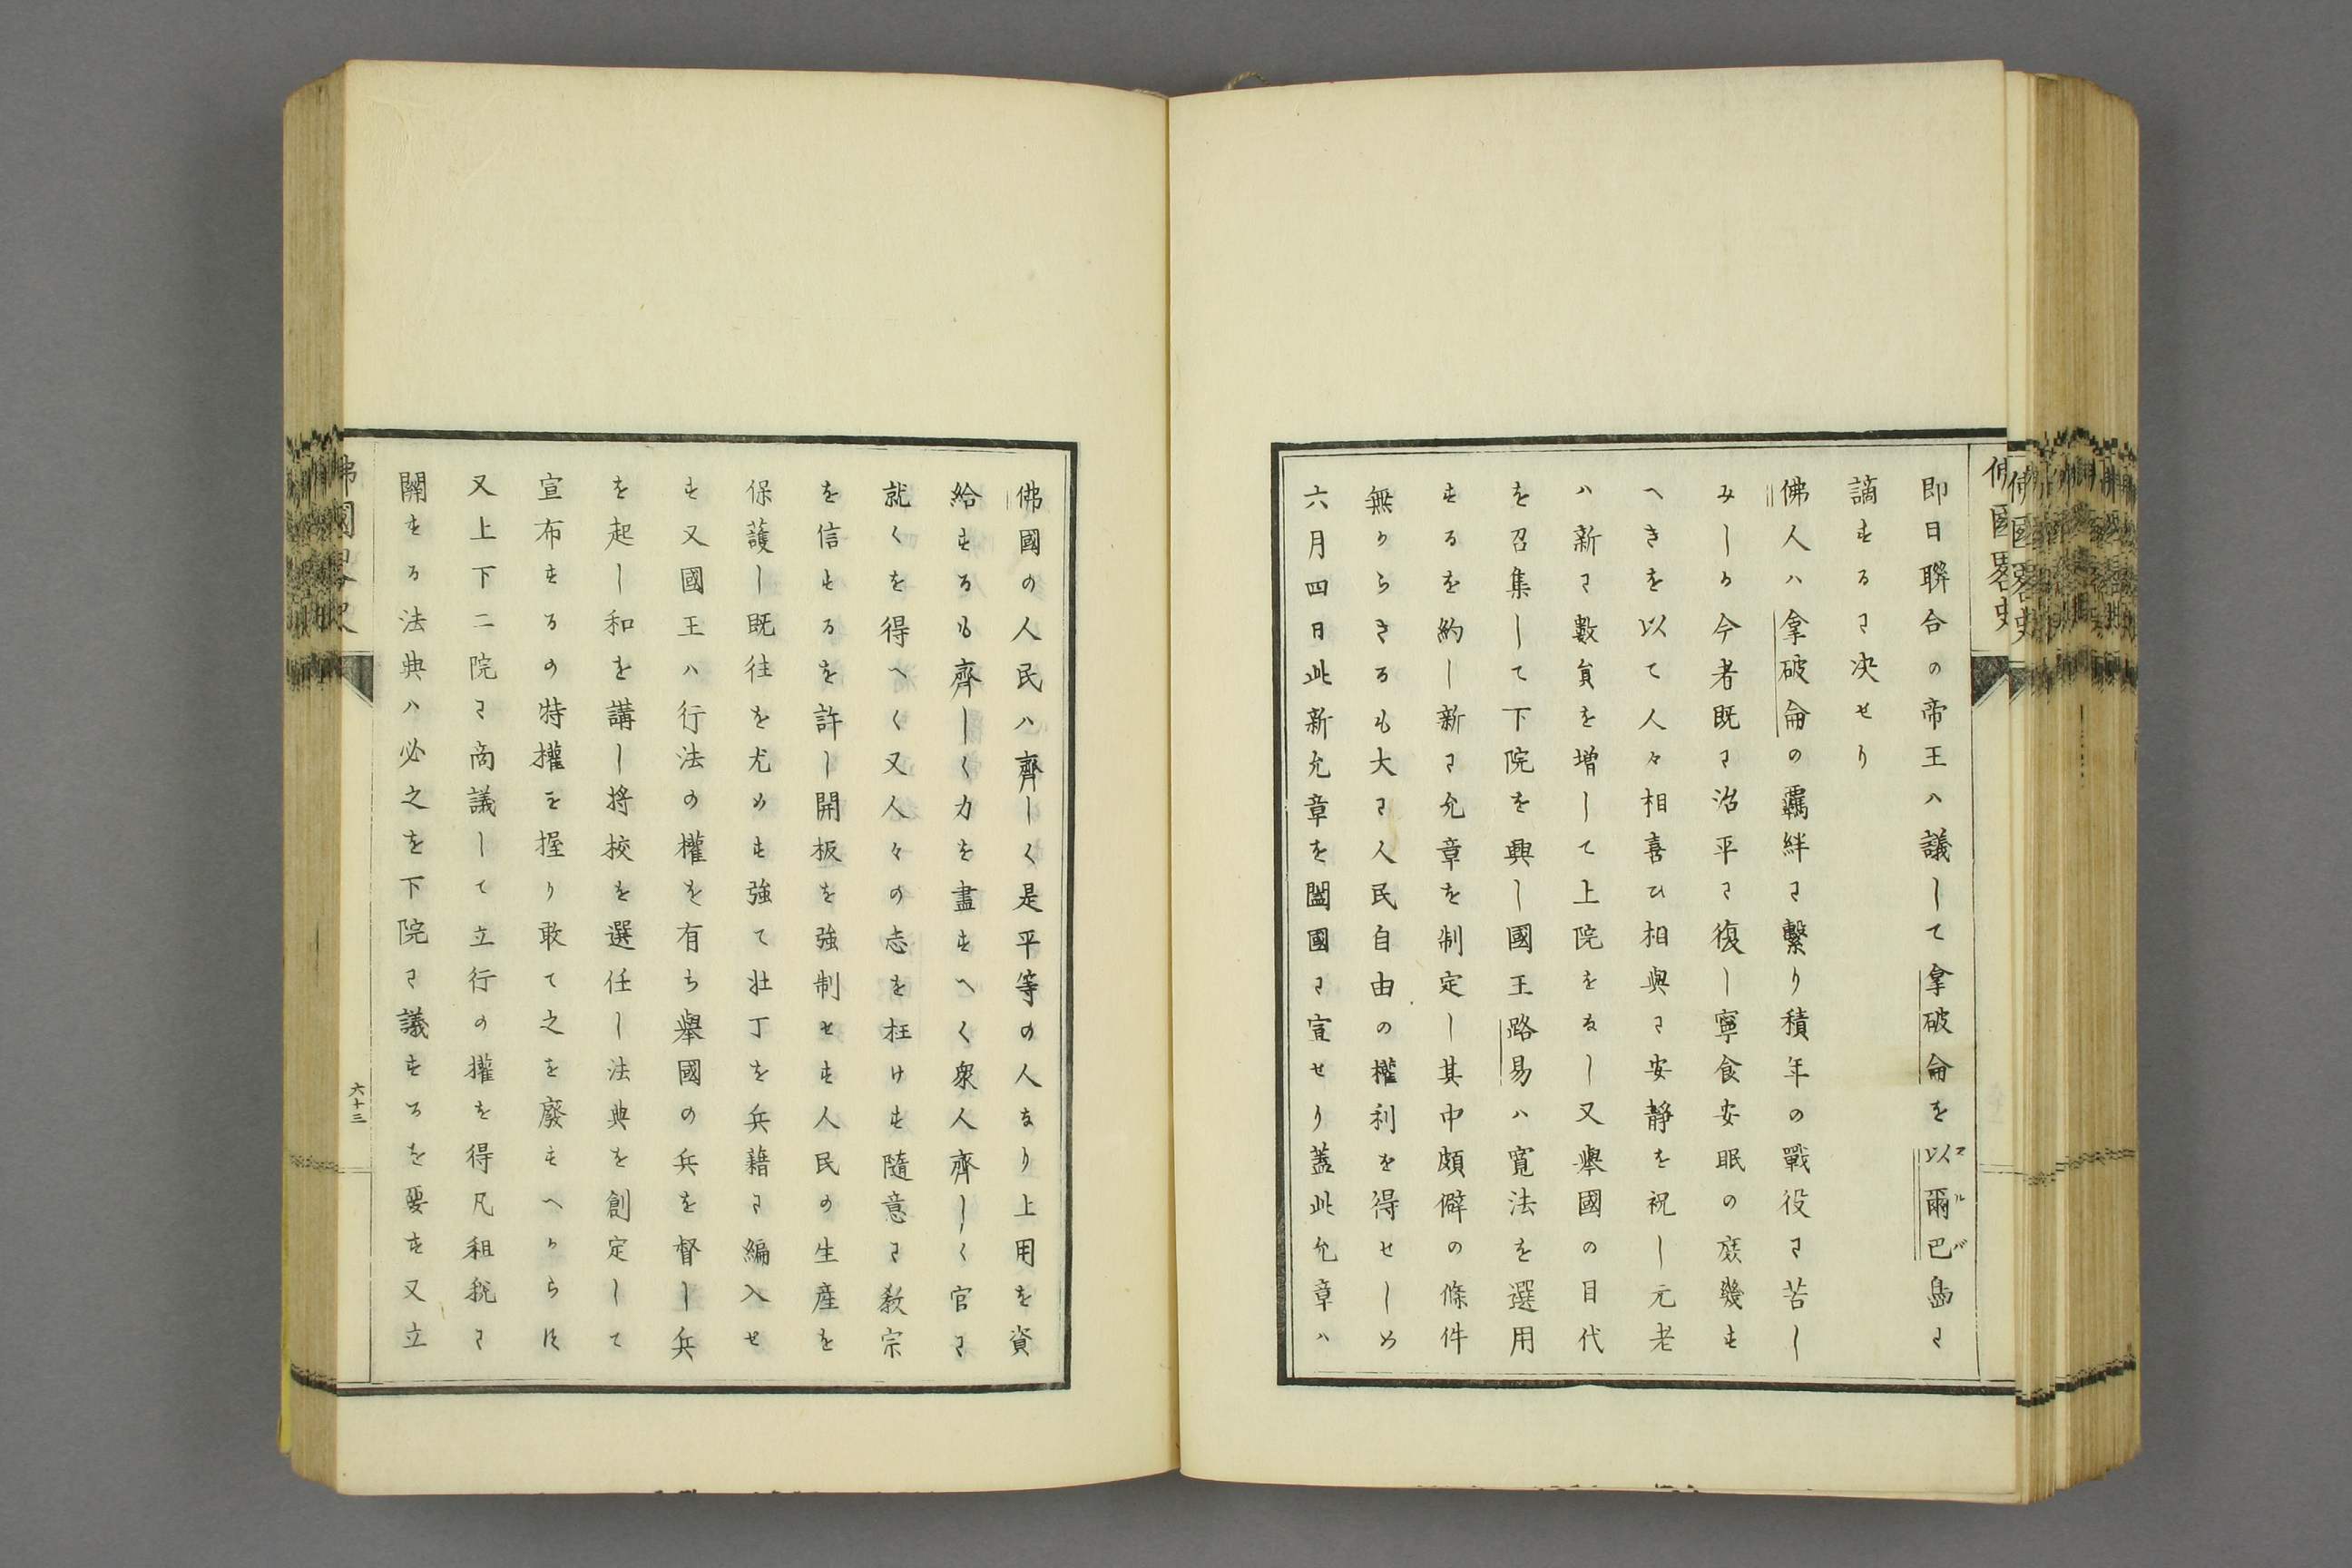 佛國畧史
即日聯合の帝王ハ議して拿破侖を以爾巴島に
謫するに决せり
佛人ハ拿破侖の羈絆に繫り積年の戰役に苦し
みしか今者既に治平に復し寧食安眠の庶幾す
へきを以て人々相喜ひ相與に安靜を祝し元老
ハ新に數貟を増して上院をなし又擧國の目代
を召集して下院を興し國王路易ハ寛法を選用
するを約し新に允章を制定し其中頗僻の條件
無からさるも大に人民自由の權利を得せしめ
六月四日此新允章を闔國に宣せり蓋此允章ハ
佛國の人民ハ齊しく是平等の人なり上用を資
給するも齊しく力を盡すへく衆人齊しく官に
就くを得へく又人々の志を枉けす隨意に教宗
を信するを許し開板を強制せす人民の生産を
保護し既往を尤めす強て壯丁を兵藉に編入せ
す又國王ハ行法の權を有ち擧國の兵を督し兵
を起し和を講し將校を選任し法典を創定して
宣布するの特權を握り敢て之を廢すへからす
又上下二院に商議して立行の權を得凡租税に
關する法典ハ必之を下院に議するを要す又立
佛國畧史
六十三